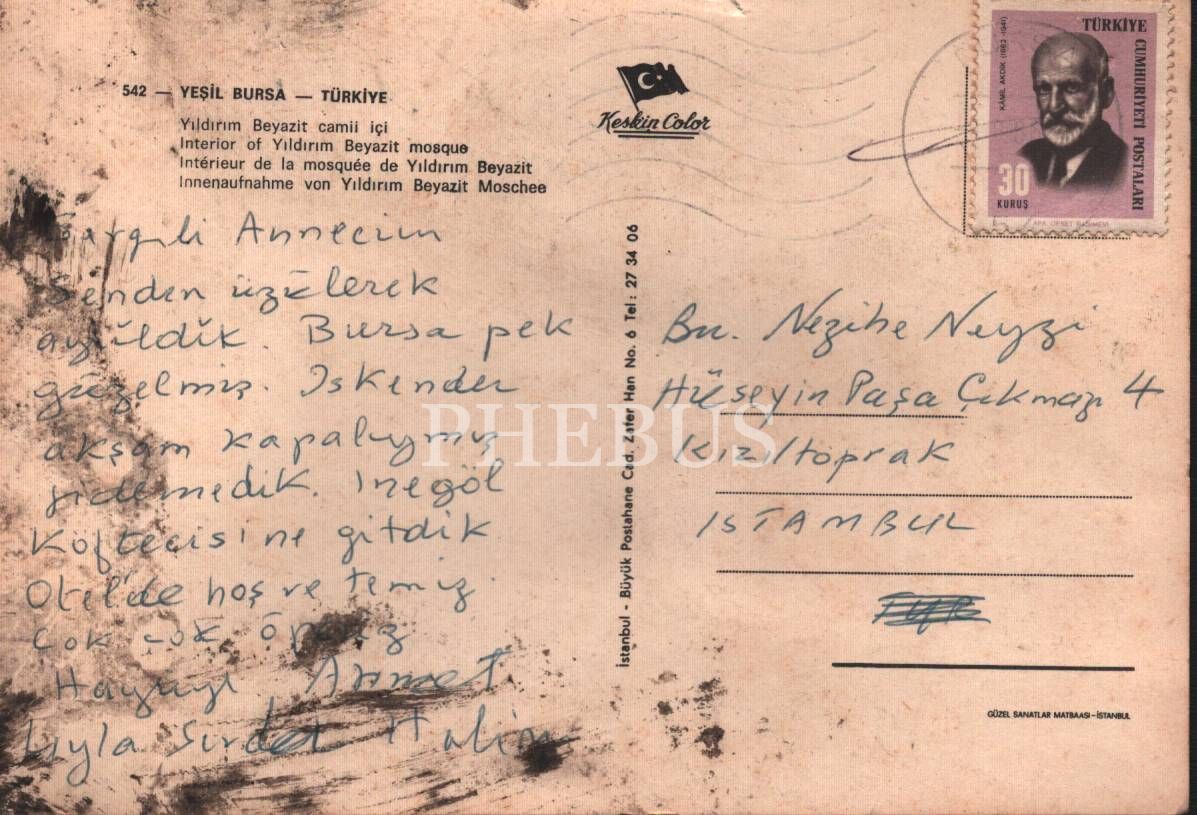 542 — YEŞİL BURSA — TÜRKİYE
Yıldırım Beyazit camii içi
Interior of Yıldırım Beyazit mosque
Intérieur de la mosquée de Yıldırım Beyazit
Innenaufnahme von Yıldırım Beyazit Moschee
Keskin Color
KÂMİL AKDİK (1862-1941)
TÜRKİYE CUMHURİYETİ POSTALARI
30
KURUŞ
Annecim
Senden üzülerek
ayrıldık. Bursa pek
güzelmiş. Iskender
akşam kapalıymış
gidemedik. Inegöl
Köftecisine gitdik
Otel'de hoş ve temiz.
Çok çok öperiz
Ahmet
Halim
İstanbul - Büyük Postahane Cad. Zafer Han No. 6 Tel: 27 34 06
Bn. Nezihe Neyzi
Hüseyin Paşa Çıkmazı 4
Kızıltoprak
ISTANBUL
GÜZEL SANATLAR MATBAASI-İSTANBUL
PHEBUS